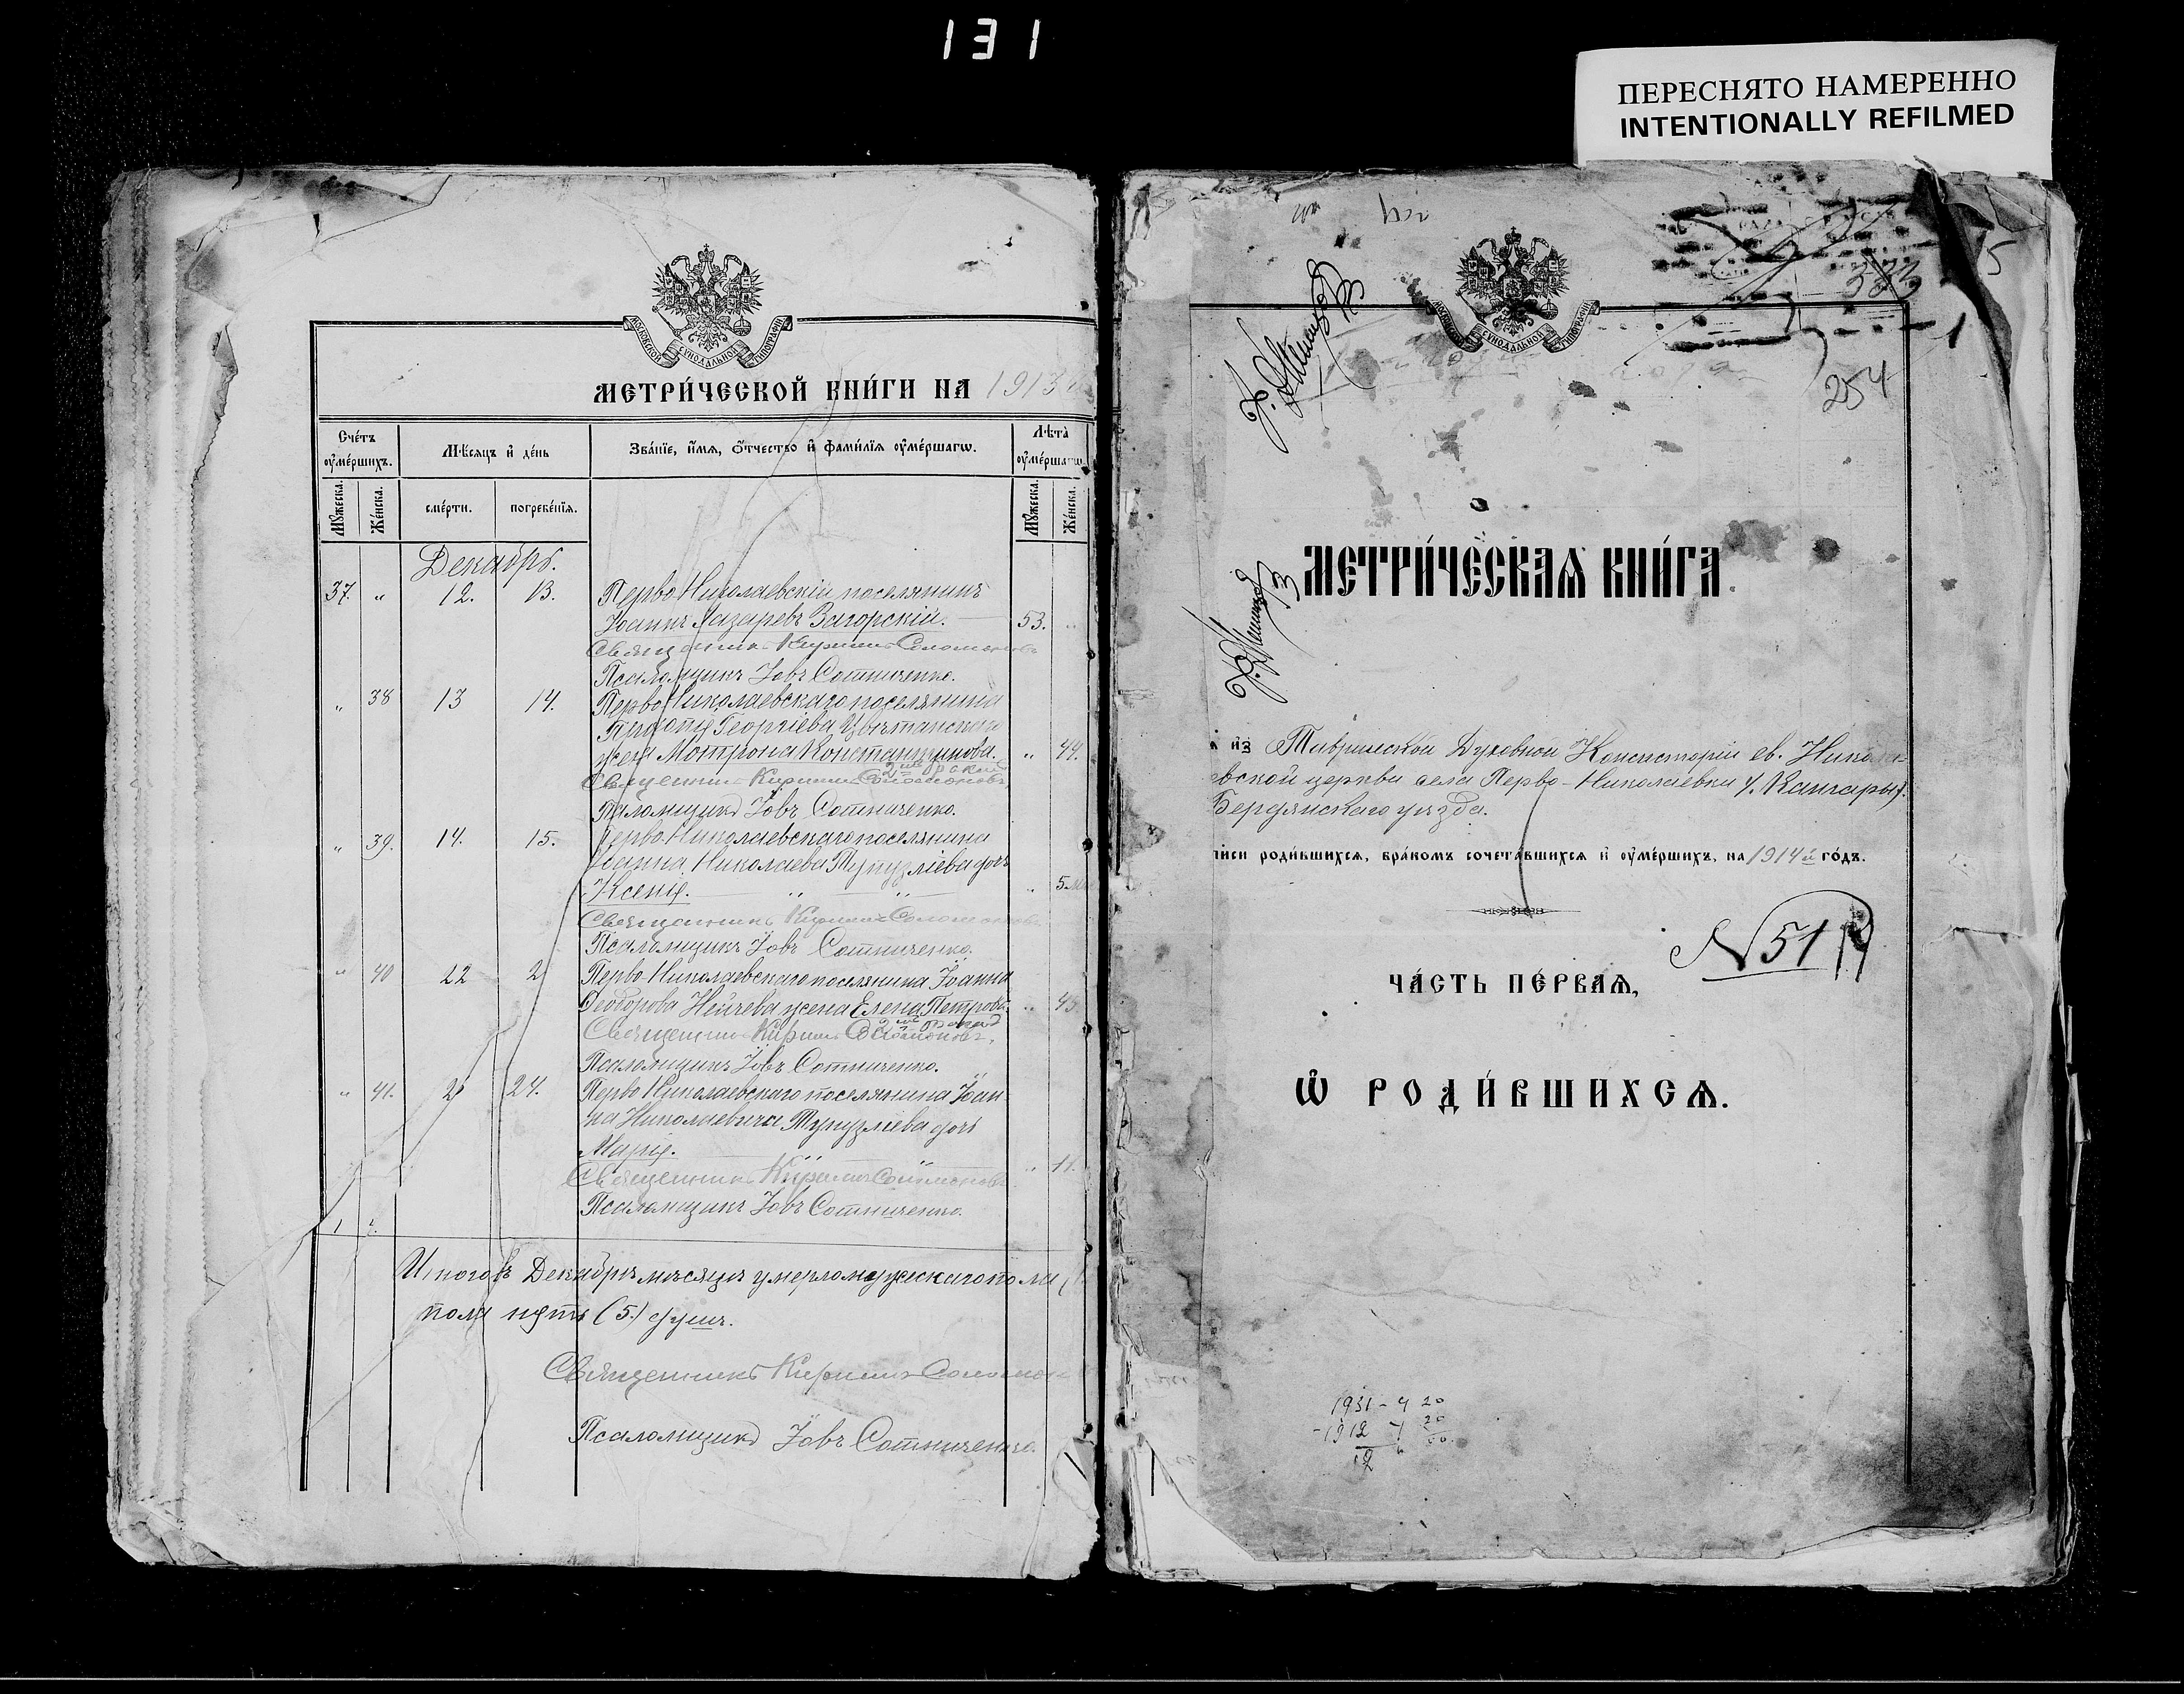 131
ПЕРЕСНЯТО НАМЕРЕННО
INTENTIONALLY REFILMED
МОСКОВСКОЙ СѴНОДАЛЬНОЙ ТИПОГРАФІИ
МЕТРИ́ЧЕСКОЙ КНИ́ГИ НА 1913
Сче́тъ оу҆ме́ршихъ.
Мѣ́сяцъ и҆ де́нь
Зва́нїе, и҆́мя, ѻ҆́тчество и҆ фами́лїя оу҆ме́ршагѡ.
Лѣ́та оу҆ме́ршагѡ
Мꙋ́жеска.
Же́нска.
сме́рти.
погребе́нїя.
Мꙋ́жеска.
Же́нска.
Декабрь.
37. " 12. 13. Перво Николаевскій поселянинъ
Іоаннъ Лазаревъ Загорскій. 53. "
Священникъ Кириллъ Соломоновъ
Псаломщикъ Іовъ Сотниченко.
" 38 13 14. Перво Николаевскаго поселянина
Георгіева
жена Мотрона Константинова. " 44.
Священникъ Кириллъ Соломоновъ
Псаломщикъ Іовъ Сотниченко.
" 39. 14. 15. Перво Николаевскаго поселянина
Іоанна Николаева Тупузліева дочь
Ксенія. " " " 5
Священникъ Кириллъ Соломоновъ
Псаломщикъ Іовъ Сотниченко.
" 40 22 2 Перво Николаевскаго поселянина Іоанна
Ѳеодорова Нейчева жена Елена Петрова. " 45
Священникъ Кириллъ Соломоновъ.
Псаломщикъ Іовъ Сотниченко.
" 41. 2 24. Перво Николаевскаго поселянина Іоан
на Николаевича Тупузліева дочь
Марія. " 11.
Священникъ Кириллъ Соломоновъ
Псаломщикъ Іовъ Сотниченко.
Итого въ Декабрѣ мѣсяцѣ умерло мужескаго пола
пола пять (5.) душъ.
Священникъ Кириллъ
Псаломщикъ Іовъ Сотниченко
МОСКОВСКОЙ СѴНОДАЛЬНОЙ ТИПОГРАФІИ
383
5
1
254
МЕТРИ́ЧЕСКАѦ КНИ́ГА
из Таврической Духовной Консисторіи св. Никола
евской церкви села Перво-Николаевки
Бердянскаго уѣзда.
писи роди́вшихся, бра́комъ сочета́вшихся и҆ оу҆ме́ршихъ, на 1914 й го́дъ.
N 51
ЧА́СТЬ ПЕ́РВАѦ,
Ѽ РОДИ́ВШИХСѦ.
1931 - 4 20
- 1912 20